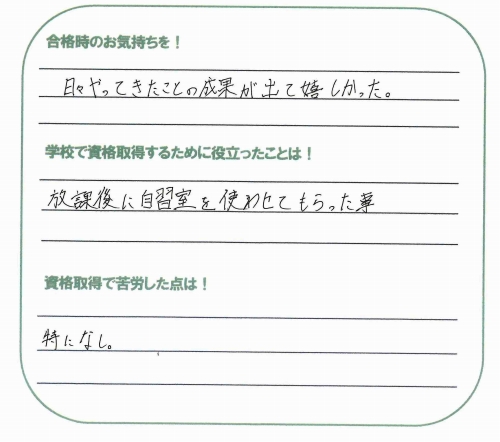 合格時のお気持ちを!
日々やってきたことの成果が出て嬉しかった。
学校で資格取得するために役立ったことは!
放課後に自習室を使わせてもらった事
資格取得で苦労した点は!
特になし。